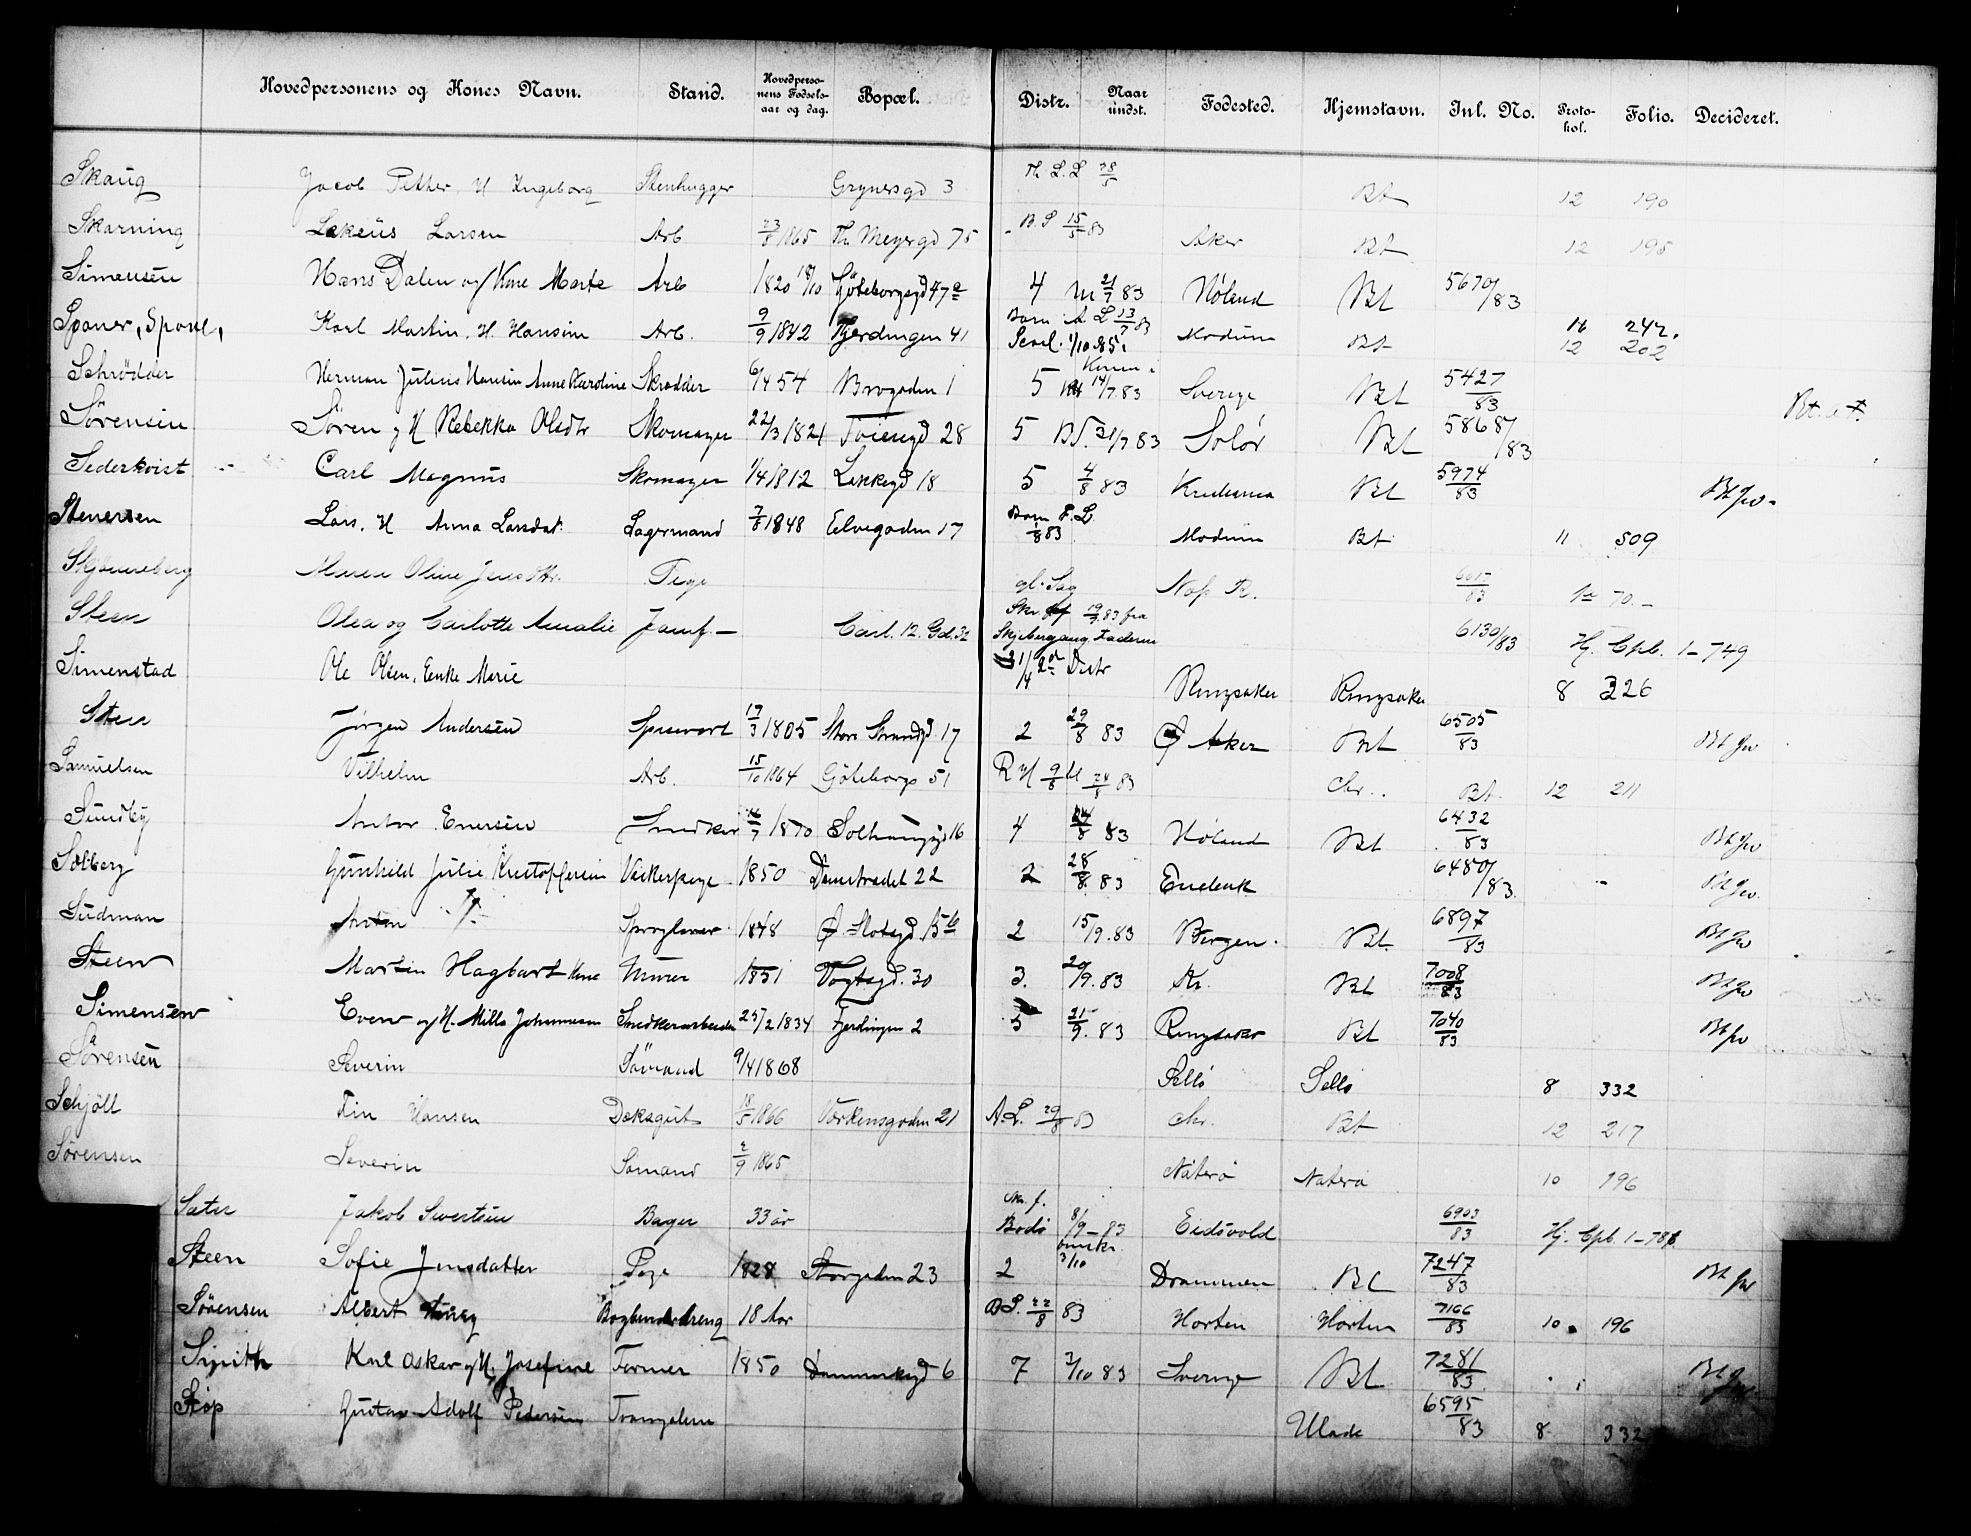 Hovedpersonens og Kones Navn. Stand. Hovedpersonens Fødselsaar og dag. Bopæl. Distr. Naar undst. Fødested. Hjemstavn. Inl. No. Protokol. Folio. Decideret.
Skaug Jacob Petter H Ingeborg Stenhugger Grynersgd 3 Th. L. L 28/5 Bt 12 190
Skarning Larsen Arb 23/8 1865 Th Meyergd 75 B. S 15/5 83 Aker Bt 12 195
Simensen Hans Dalen og Kone Marte Arb 1820 18/10 Göteborgsgd 47a 4 21/7 83 Høland Bt 5670/83
Spaner, Karl Martin, H. Hansine Arb. 9/9 1842 Fjerdingen 41 Barn A L 13/7 83 Modum Bt 11 242.
1/10 85 12 202
Schrødder Herman Julius Hansen Anne Karoline Skrædder 6/4 54 Brogaden 1 5 14/7 83 Sverige Bt 5427/83
Sørensen Søren og H Rebekka Olsdtr Skomager 22/3 1821 Tøiengd 28 5 31/7 83 Solør Bt 5868/83
Sederkvist Carl Magnus Skomager 1/4 1812 Lakkegd 18 5 4/8 83 Kristiania Bt 5974/83 Bt Jw.
Stenersen Lars, H Anna Larsdat. Lagermand 7/8 1848 Elvegaden 17 Barn F. L. 1/8 83 Modum Bt 11 509
Skjønneberg Maren Oline Jensdtr. Pige gl. Sag 6017/83 70.-
Steen Olea og Carlotte Amalie Carl. 12. Gd. 32 19/7 83 fra Faderen 6130/83 Hj. Cpb. 1-749
Simenstad Ole Olsen, Enke Marie 21/4 2 Distr Ringsaker Ringsaker 8 326
Steen Jørgen Andersen 17/3 1805 Store Strandgd 17 2 29/8 83 Ø Aker Bt 6505/83 Bt Jw
Samuelsen Vilhelm Arb. 15/10 1864 Göteborgs 51 24/8 83 Chr. Bt. 12 211
Sundby Anton Enersen Snedker 1870 Solhauggs 16 4 24/8 83 Høland Bt 6432/83 Bt Jw
Solberg Gunhild Julie Kristoffersen Vaskerpige 1850 Damstradet 22 2 28/8 83 Enebak 6480/83 Bt Jw.
Sudman Anton Sproglærer 1848 Ø. Slotsgd. 15b 2 15/9. 83 Bergen. Bt 6897/83 Bt Jw
Steen Martin Hagbart Kone Murer 1851 Vogtsgd. 30 3. 20/9. 83 Kr. Bt 7008/83 Bt Jw
Simensen Even og H. Mille Johannesen Snedkerarbeider 25/2 1834 Fjerdingen 2 5 21/9. 83 Ringsaker Bt 7040/83 Bt Jw
Sørensen Severin Sømand 9/4 1868 8 332
Schjøll Fin Hansen Dæksgut 18/5 1866 Verkensgaden 21 A. L. 29/8 83 Chr. Bt 12 217
Sørensen Severin Sømand 2/9 1865 Nøterø Nøterø 10 196
Sæter Jakob Sivertsen Bager 33 år Bodø 8/9-83 Eidsvold 6903/83 Hj. Cpb. 1-786
Steen Sofie Jensdatter Pige 1828 Storgaden 23 2 3/10 Drammen Bt 7247/83 Bt Jw
Sørensen Albert Bogbinderdreng 18 Aar B S. 22/8 83 Horten Horten 7166/83 10 196
Karl Oskar og H. Josefine Former 1850 Danmarksgd 6 7 2/10 83 Sverige Bt 7281/83 Bt Jw
Støp Gustav Adolf Pedersen 6595/83 8 332